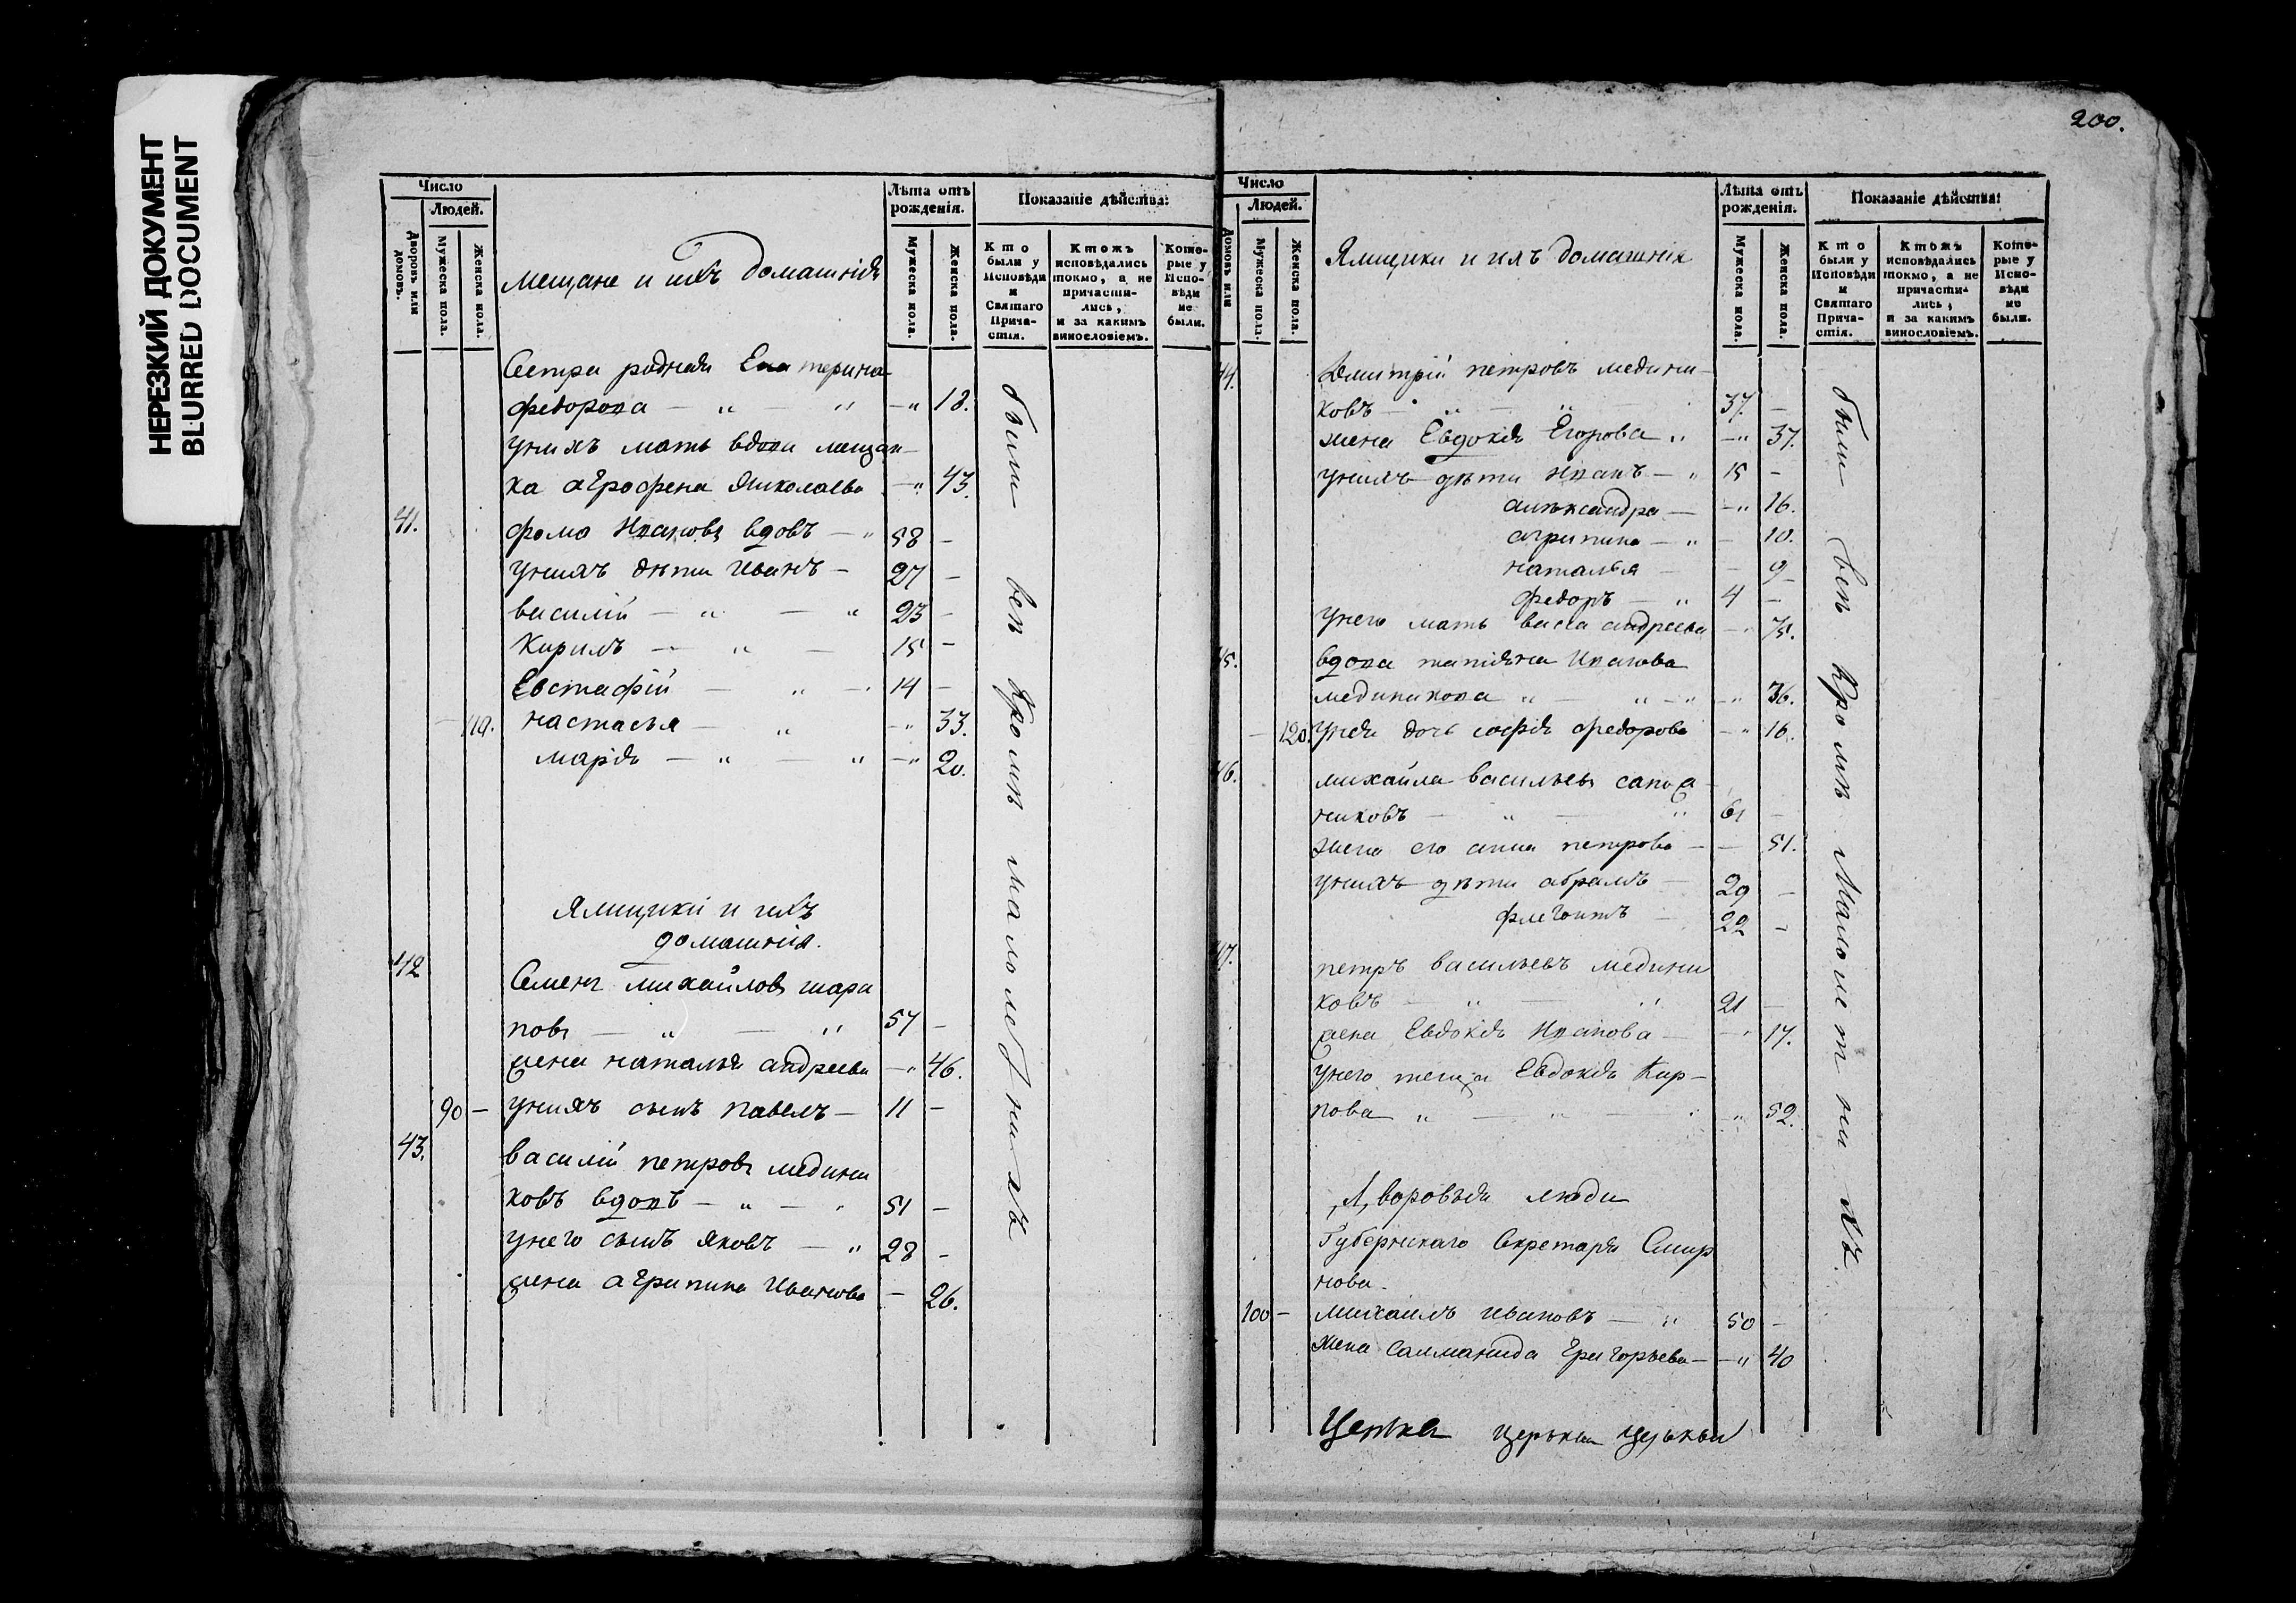 НЕРЕЗКИЙ ДОКУМЕНТ
BLURRED DOCUMENT
Число
Людей.
Дворовъ или домовъ.
Мужеска пола.
Женска пола.
мещане и ихъ домашнія
Лѣта отъ рожденія.
Мужеска пола.
Женска пола.
Показаніе дѣйства:
Кто были у Исповѣди и Святаго Прича-стія.
Ктожъ исповѣдались токмо, а не причасти-лись, и за какимъ винословіемъ.
Кото-рые у Испо-вѣди не были.
Сестра родная Екатерина
федорова — „ — „ — „ 18.
унихъ мать вдова мещан-
ка агрофена Николаева — „ 43.
41. фома Ивановъ вдовъ — „ 58 —
унихъ дѣти Иванъ — 27 —
василій — „ — „ 23 —
Кирилъ — „ — 15 —
Евстафій — „ — 14 —
— 110. настасья — „ — „ 33.
марія — „ — „ — „ 20.
Ямщики и ихъ
домашнія.
42 Семенъ михайловъ шара
повъ — „ — „ 57 —
жена наталья андреева — „ 46.
90 — унихъ сынъ павелъ — 11 —
43. василій петровъ медени
ковъ вдовъ — „ — „ 51 —
унего сынъ яковъ — „ 28 —
жена агрипина Иванова — 26.
были всѣ Кромѣ малолетнихъ
200.
Число
Людей.
Домовъ или
Мужеска пола.
Женска пола.
Ямщики и ихъ домашнія
Лѣта отъ рожденія.
Мужеска пола.
Женска пола.
Показаніе дѣйства:
Кто были у Исповѣди и Святаго Прича-стія.
Ктожъ исповѣдались токмо, а не причасти-лись, и за какимъ винословіемъ.
Кото-рые у Испо-вѣди не были.
44. Дмитрій петровъ медени—
ковъ — „ — „ 37. —
жена Евдокія Егорова „ — „ 37.
унихъ дѣти Иванъ — „ 15 —
александра — — „ 16.
агрипина — „ — 10.
наталья — — 9
федоръ — „ 4 —
унего мать васса андреева — „ 75.
45. вдова татіяна Иванова
меденикова „ — „ — „ 36.
— 120. унея дочь софія федорова — „ 16.
46. михайла васильевъ сапож
никовъ — „ — „ 61 —
жена его анна петрова — — 51.
унихъ дѣти абрамъ — 29 —
флегонтъ — 22 —
47. петръ васильевъ медени
ковъ — „ — „ 21 —
жена Евдокія Иванова — — „ 17.
унего теща Евдокія Кар—
пова „ — „ — „ 52.
Дворовыя люди
Губернскаго Секретаря Смир
нова.
100 — михаилъ ивановъ — „ 50 —
жена Саламанида Григорьева — — „ 40
церкви
были всѣ Кромѣ Малолетнихъ